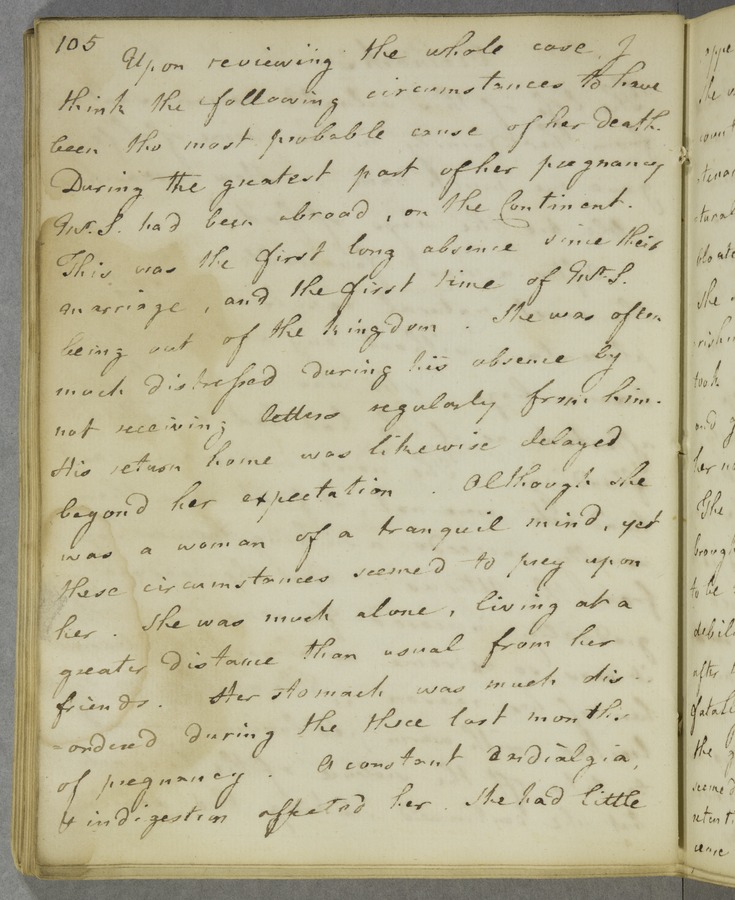 105
Upon reviewing the whole case, I
think the following circumstances to have
been the most probable cause of her death.
During the greatest part of her pregnancy
Mr. S. had been abroad, on the Continent.
This was the first long absence since their
marriage, and the first time of Mr. S.
being out of the kingdom. She was often
much distressed during his absence by
not receiving letters regularly from him.
His return home was likewise delayed
beyond her expectation. Although she
was a woman of a tranquil mind, yet
these circumstances seemed to prey upon
her. She was much alone, living at a
greater distance than usual from her
friends. Her stomach was much dis-
-ordered during the three last months
of pregnancy. A constant Cardialgia,
& indigestion affected her. She had little